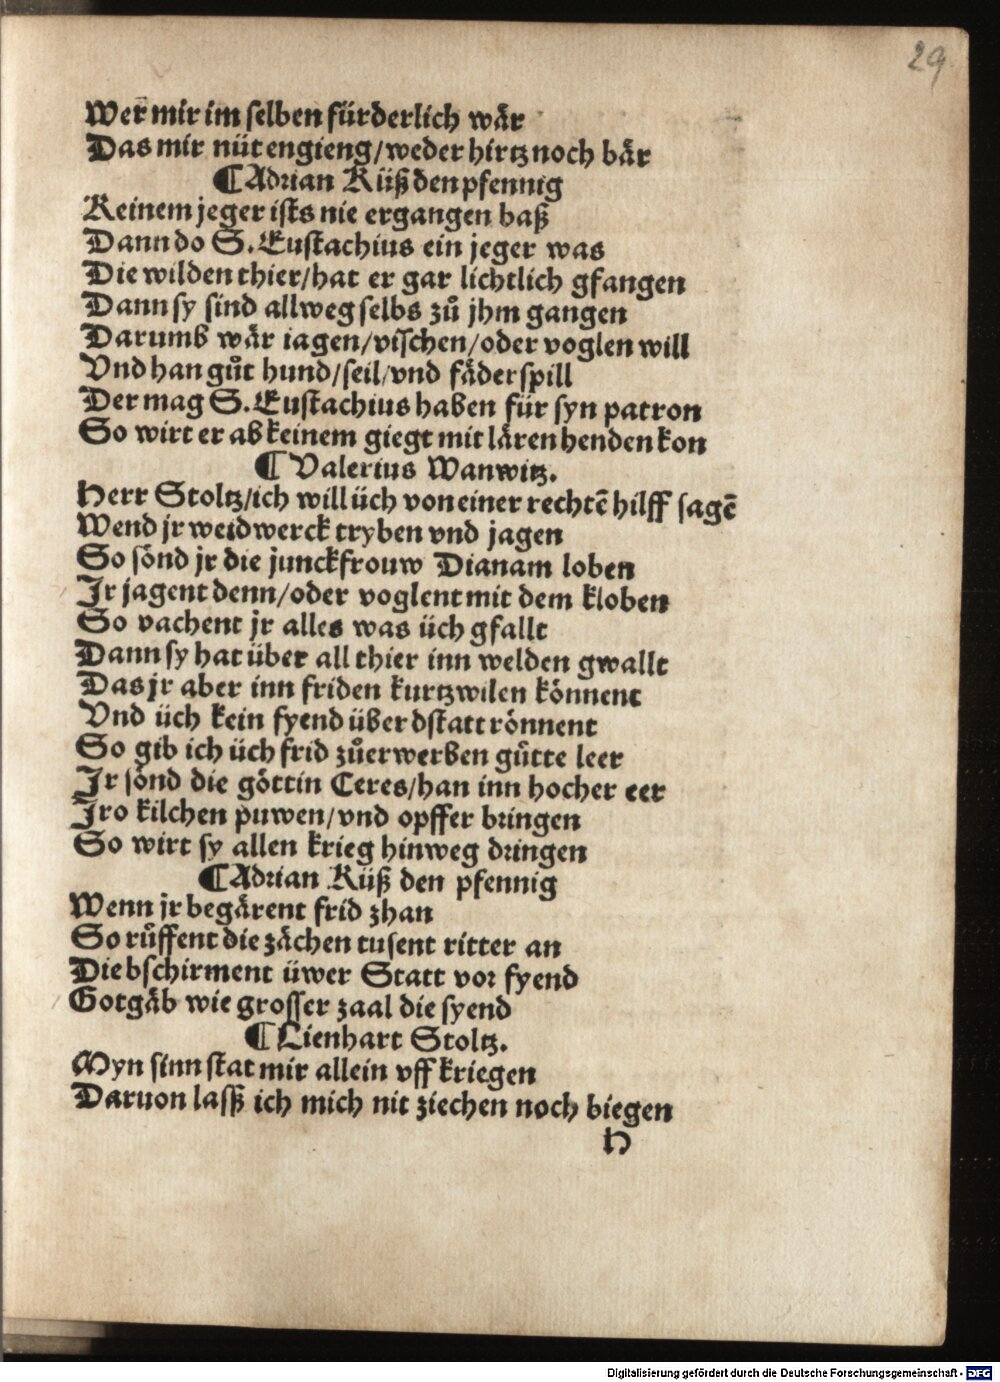 29
Wer̄ mir im selben fürderlich wår
Das mir nüt engieng/weder hirtz noch bår
¶ Adrian Küß den pfennig
Keinem jeger ists nie ergangen baß
Dann do S. Eustachius ein jeger was
Die wilden thier/hat er gar lichtlich gfangen
Dann sy sind allweg selbs zů jhm gangen
Darumb wår iagen/vischen/oder voglen will
Vnd han gůt hund/seil/vnd fåderspill
Der mag S. Eustachius haben für syn patron
So wirt er ab keinem giegt mit låren henden kon
¶ Valerius Wanwitz.
Herr Stoltz/ich will üch von einer rechtē hilff sagē
Wend jr weidwerck tryben vnd jagen
So sönd jr die junckfrouw Dianam loben
Jr jagent denn/oder voglent mit dem kloben
So vachent jr alles was üch gfallt
Dann sy hat über all thier inn welden gwallt
Das jr aber inn friden kurtzwilen können​t
Vnd üch kein fyend über dstatt rönnent
So gib ich üch frid zůerwerben gůtte leer
Jr sönd die göttin Ceres/han inn hocher eer
Jro kilchen puwen/vnd opffer bringen
So wirt sy allen krieg hinweg dringen
¶ Adrian Küß den pfennig
Wenn jr begårent frid zhan
So růffent die zåchen tusent ritter an
Die bschirment üwer Statt vor fyend
Gotgåb wie grosser zaal die syend
¶ Lienhart Stoltz.
Myn sinn stat mir allein vff kriegen
Daruon lasß ich mich nit ziechen noch biegen
H
Digitalisierung gefördert durch die Deutsche Forschungsgemeinschaft - DFG